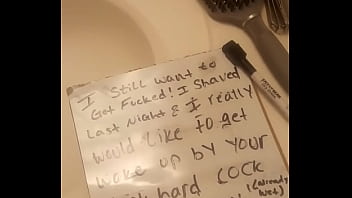 I Still want to
Get Fucked! I Shaved
Last Night & I really
would like to get
woke up by your
hard COCK
(already
wet)